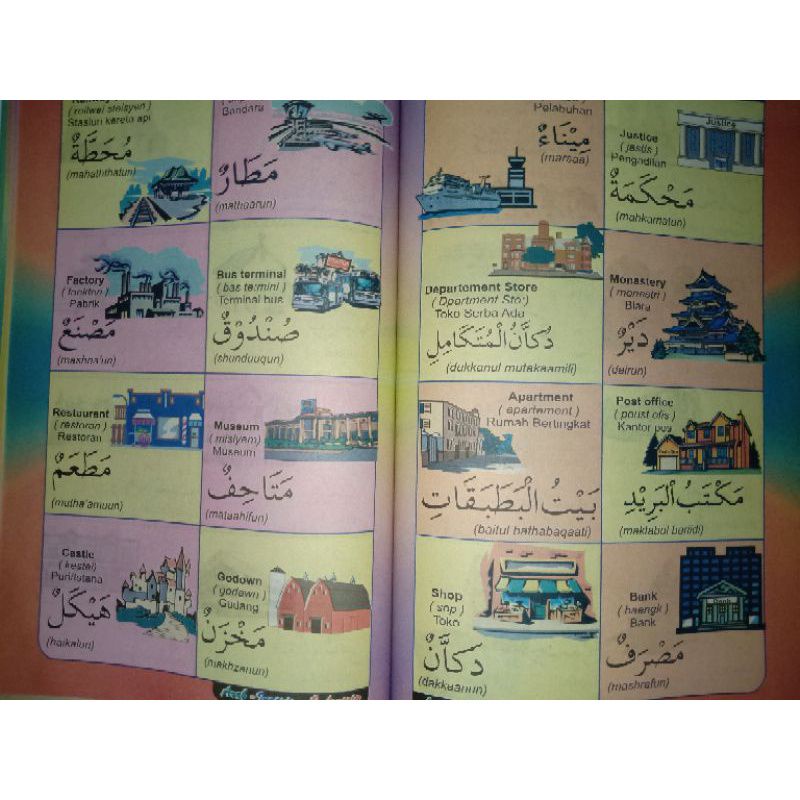 ( railwei steisyen )
Stasiun kereta api
مُحَطَّةٌ
(mahaththatun)
Bandara
مَطَارٌ
(mathaarun)
Factory
Pabrik
مَصْنَعٌ
(mashna'un)
Bus terminal
( bas termini )
Terminal bus
صُنْدُوْقٌ
(shunduuqun)
Restaurant
( restoran )
Restoran
مَطَعَمٌ
(mutha'amuun)
Museum
( misiyem )
Museum
مَتَاحِفٌ
(mataahifun)
Castle
( kestel )
Puri/Istana
هَيْكَلٌ
(haikalun)
Godown
( godawn )
Gudang
مَخْزَنٌ
(makhzanun)
Pelabuhan
مِيْنَاءٌ
(marsaa)
Justice
Justice
( jastis )
Pengadilan
مَحْكَمَةٌ
(mahkamatun)
Departement Store
( Dpartment Stor )
Toko Serba Ada
دُكَّانُ الْمُتَكَامِلِ
(dukkanul mutakaamili)
Monastery
( monestri )
Biara
دَيْرٌ
(dairun)
Apartment
( apartement )
Rumah Bertingkat
بَيْتُ الْبَطَبَقَاتِ
(baitul bathabaqaati)
Post office
( poust ofis )
Kantor pos
مَكْتَبُ الْبَرِيْدِ
(maktabul bariidi)
Shop
( sop )
Toko
دَكَّانٌ
(dakkaanun)
Bank
( baengk )
Bank
Bank
مَصْرَفٌ
(mashrafun)